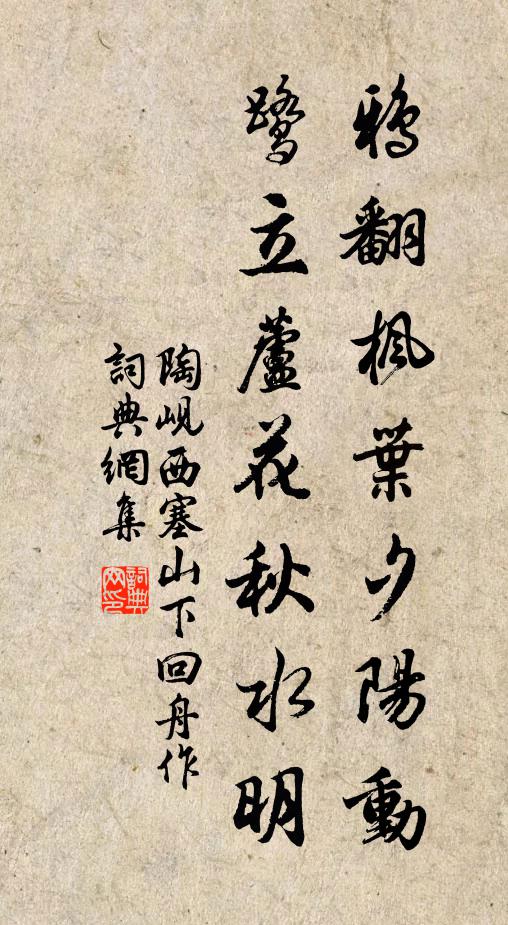 鴉翻楓葉夕陽動
鷺立蘆花秋水明
陶峴西塞山下回舟作
詞典網集
詞典
網印